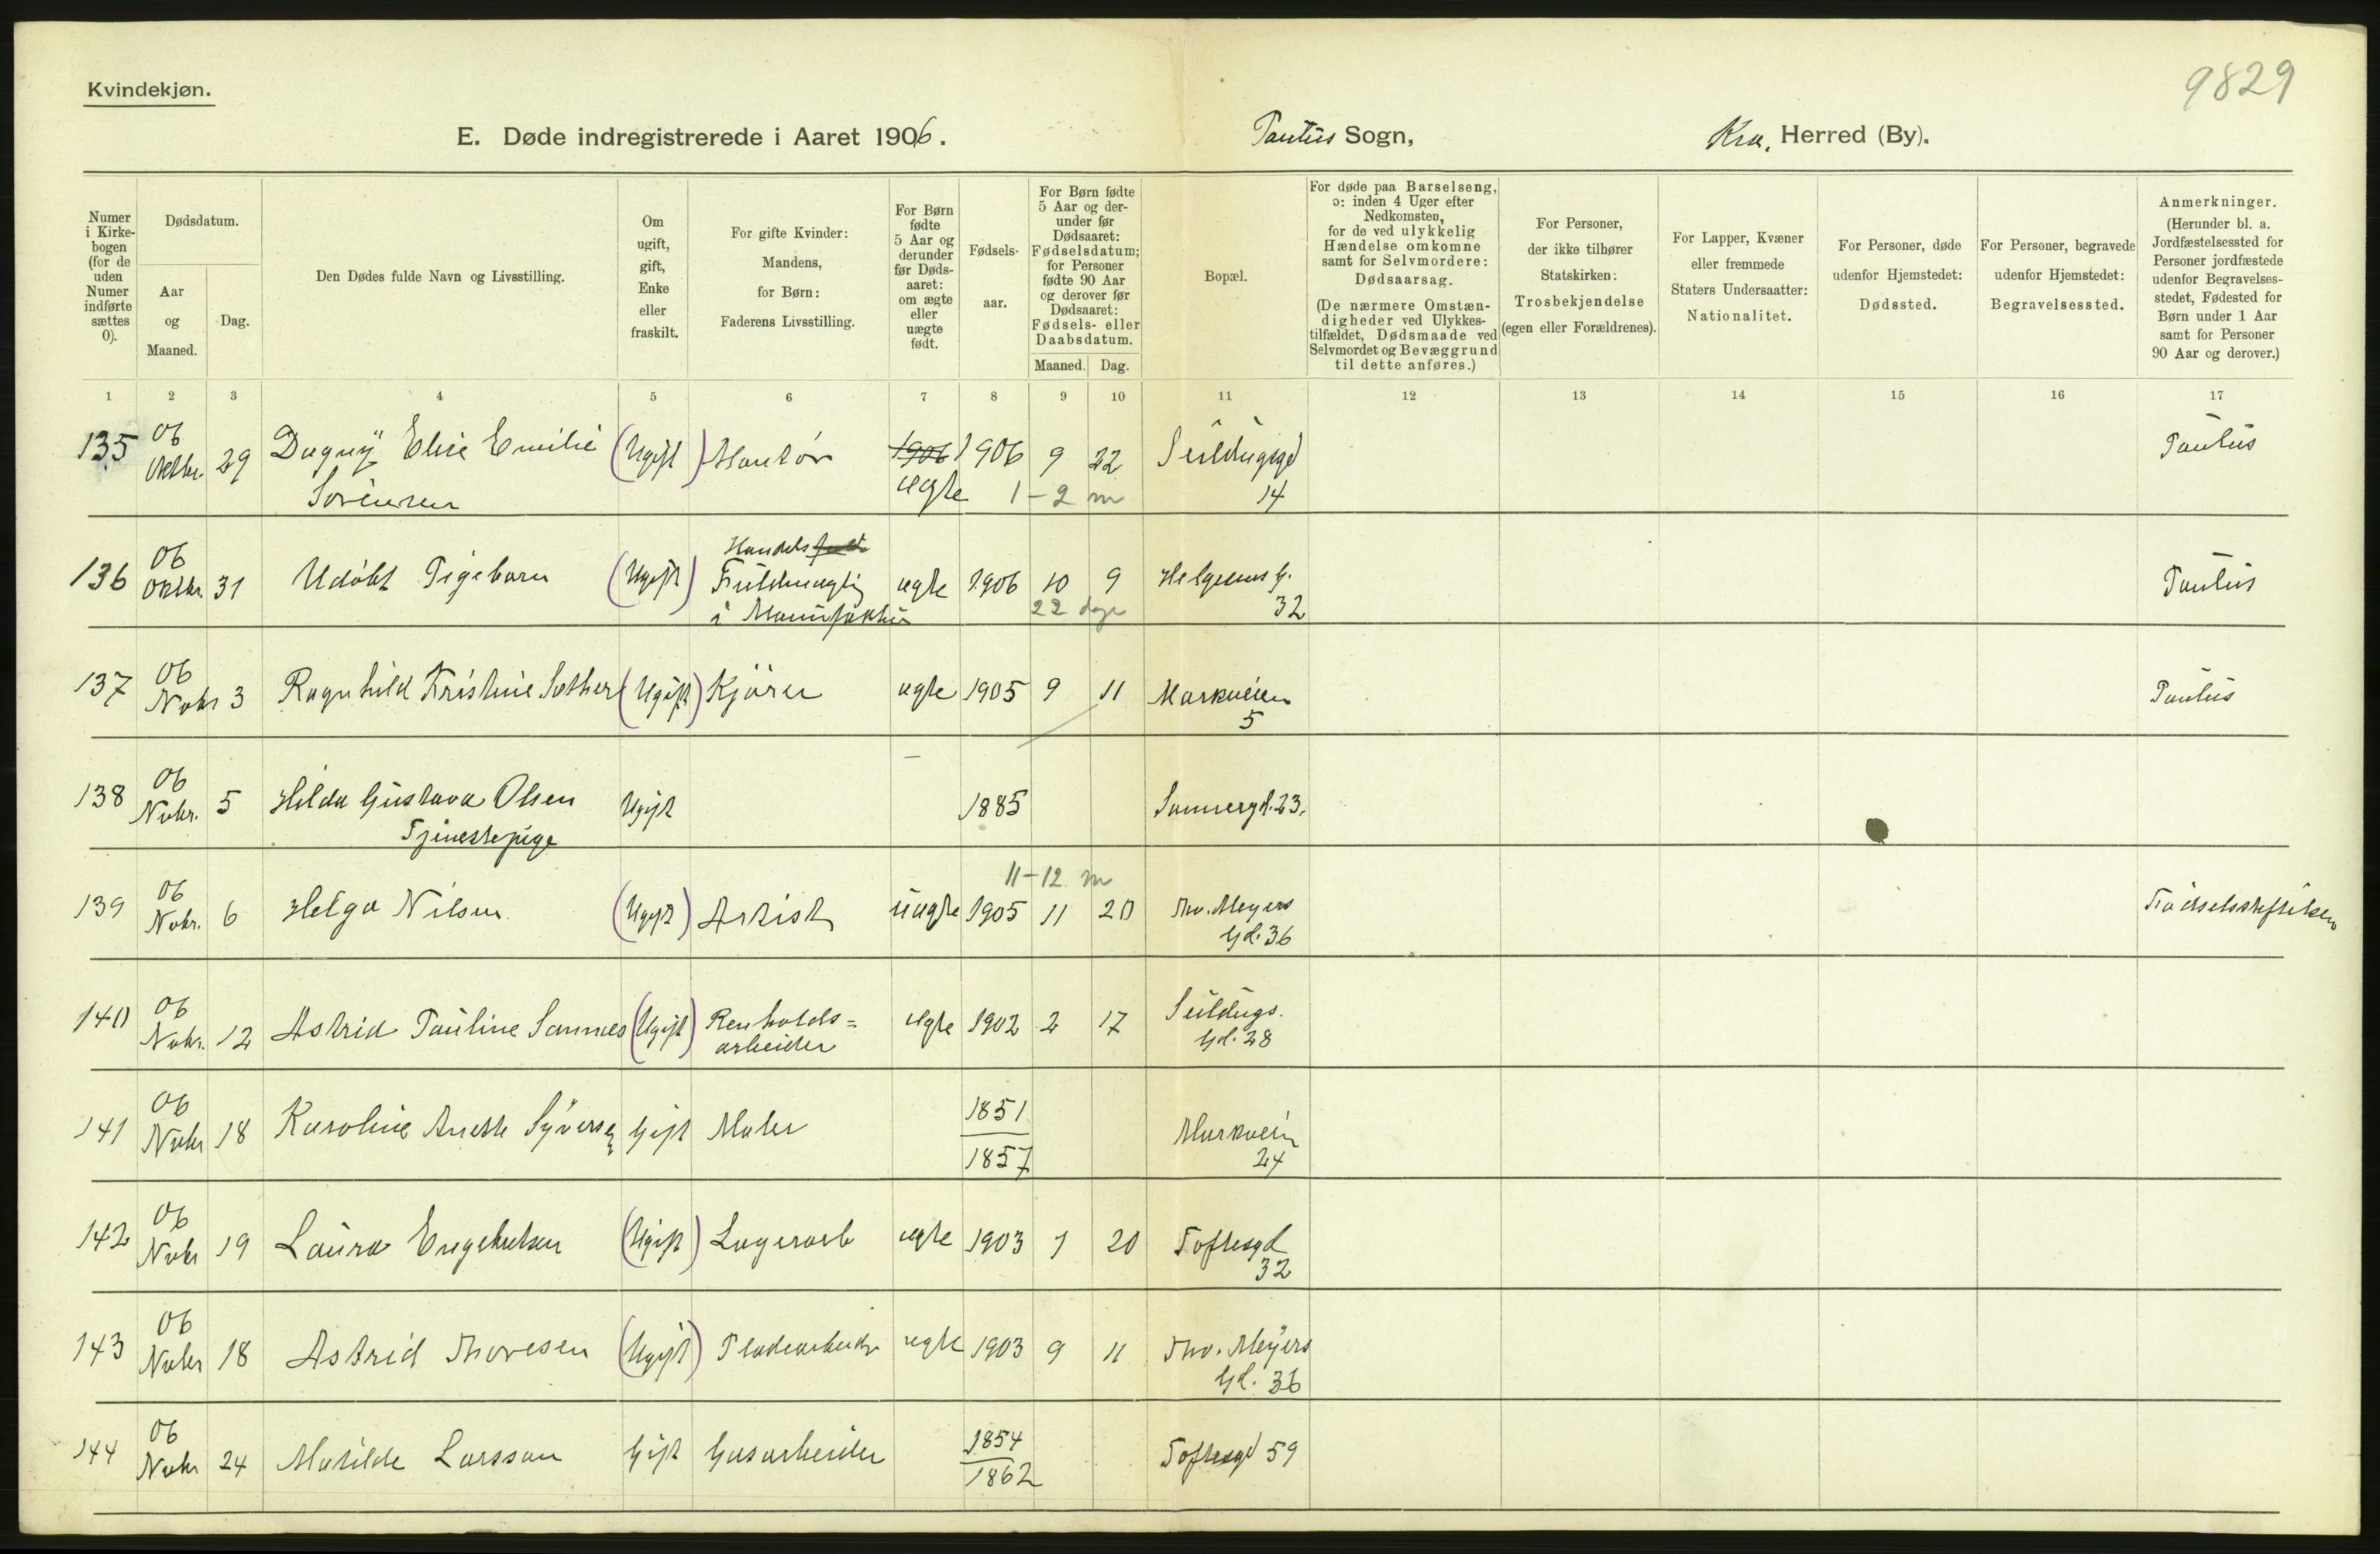 Kvindekjøn.
9829
E. Døde indregistrerede i Aaret 1906.
Paulus Sogn,
Kra. Herred (By).
Numer i Kirkebogen (for de uden Numer indførte sættes 0).
Dødsdatum.
Aar og Maaned.
Dag.
Den Dødes fulde Navn og Livsstilling.
Om ugift, gift, Enke eller fraskilt.
For gifte Kvinder: Mandens, for Børn: Faderens Livsstilling.
For Børn fødte 5 Aar og derunder før Dødsaaret: om ægte eller uægte født.
Fødselsaar.
For Børn fødte 5 Aar og derunder før Dødsaaret: Fødselsdatum; for Personer fødte 90 Aar og derover før Dødsaaret: Fødsels- eller Daabsdatum.
Maaned. Dag.
Bopæl.
For døde paa Barselseng, ɔ: inden 4 Uger efter Nedkomsten, for de ved ulykkelig Hændelse omkomne samt for Selvmordere: Dødsaarsag.
(De nærmere Omstændigheder ved Ulykkestilfældet, Dødsmaade ved Selvmordet og Bevæggrund til dette anføres.)
For Personer, der ikke tilhører Statskirken: Trosbekjendelse (egen eller Forældrenes).
For Lapper, Kvæner eller fremmede Staters Undersaatter: Nationalitet.
For Personer, døde udenfor Hjemstedet: Dødssted.
For Personer, begravede udenfor Hjemstedet: Begravelsessted.
Anmerkninger.
(Herunder bl. a. Jordfæstelsessted for Personer jordfæstede udenfor Begravelsesstedet, Fødested for Børn under 1 Aar samt for Personer 90 Aar og derover.)
1 2 3 4 5 6 7 8 9 10 11 12 13 14 15 16 17
135 06 Oktbr. 29 Dagny Elise Emilie (Ugift) Kontor 1906 1906 9 22 Seildugsgd Paulus
Sørensen ægte 1-2 m 14
136 06 Oktbr. 31 Udøbt Pigebarn (Ugift) Handels
Fuldmægtig ægte 1906 10 9 Helgesens G. Paulus
i Manufaktur 22 dage 32
137 06 Nobr 3 Ragnhild Kristine Sæther (Ugift) Kjører ægte 1905 9 11 Markveien Paulus
5
138 06 Nobr. 5 Hilda Gustava Olsen Ugift 1885 Sannergd. 23.
Tjenestepige
11-12 m
139 06 Nobr. 6 Helga Nilsen (Ugift) Artist uægte 1905 11 20 Thv. Meyers Fødselsstiftelsen
Gd. 36
140 06 Nobr. 12 Astrid Pauline Sannes (Ugift) Renholds= ægte 1902 2 17 Seildugs.
arbeider Gd. 28
141 06 Nobr 18 Karoline Anette Syversen Gift Maler 1851 Markvein
1857 24
142 06 Nobr 19 Laura Engebretsen (Ugift) Lagerarb ægte 1903 1 20 Toftesgd
32
143 06 Nobr 18 Astrid Thoresen (Ugift) Pladearbeider ægte 1903 9 11 Thv. Meyers
Gd. 36
144 06 Nobr 24 Matilde Larsson Gift Gasarbeider 1854 Toftesgd 59
1862